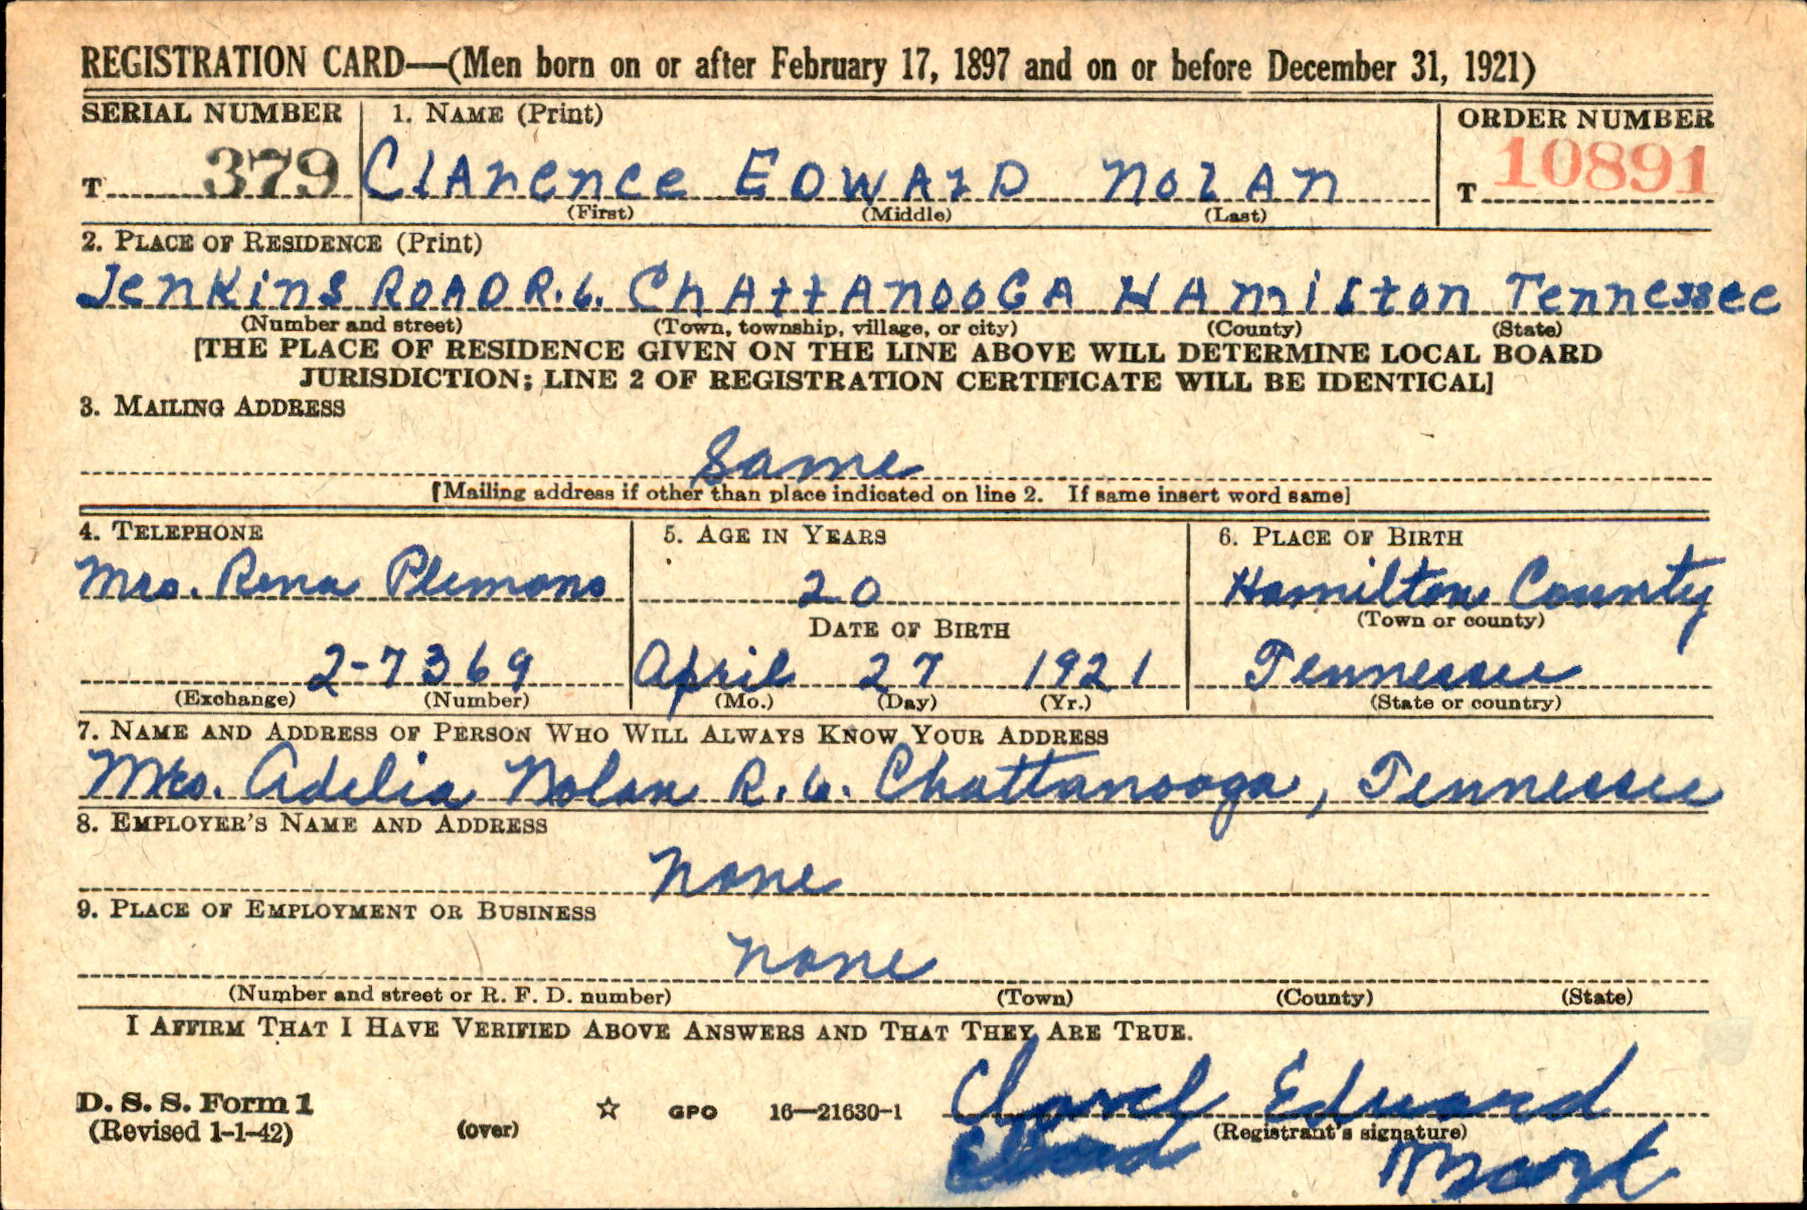 REGISTRATION CARD—(Men born on or after February 17, 1897 and on or before December 31, 1921)
SERIAL NUMBER 1. NAME (Print) ORDER NUMBER
T 379 Clarence EDWARD Nolan T 10891
(First) (Middle) (Last)
2. PLACE OF RESIDENCE (Print)
Jenkins ROAD R.6. ChAttAnooGA HAmilton Tennessee
(Number and street) (Town, township, village, or city) (County) (State)
[THE PLACE OF RESIDENCE GIVEN ON THE LINE ABOVE WILL DETERMINE LOCAL BOARD
JURISDICTION; LINE 2 OF REGISTRATION CERTIFICATE WILL BE IDENTICAL]
3. MAILING ADDRESS
Same
[Mailing address if other than place indicated on line 2. If same insert word same]
4. TELEPHONE 5. AGE IN YEARS 6. PLACE OF BIRTH
Mrs. Rena Plemons 20 Hamilton County
DATE OF BIRTH (Town or county)
2-7369 April 27 1921 Tennessee
(Exchange) (Number) (Mo.) (Day) (Yr.) (State or country)
7. NAME AND ADDRESS OF PERSON WHO WILL ALWAYS KNOW YOUR ADDRESS
Mrs. Adelia Nolan R.6. Chattanooga, Tennessee
8. EMPLOYER'S NAME AND ADDRESS
None
9. PLACE OF EMPLOYMENT OR BUSINESS
None
(Number and street or R. F. D. number) (Town) (County) (State)
I AFFIRM THAT I HAVE VERIFIED ABOVE ANSWERS AND THAT THEY ARE TRUE.
D. S. S. Form 1
(Revised 1-1-42) (over) ☆ GPO 16—21630-1 Edward
(Registrant's signature)